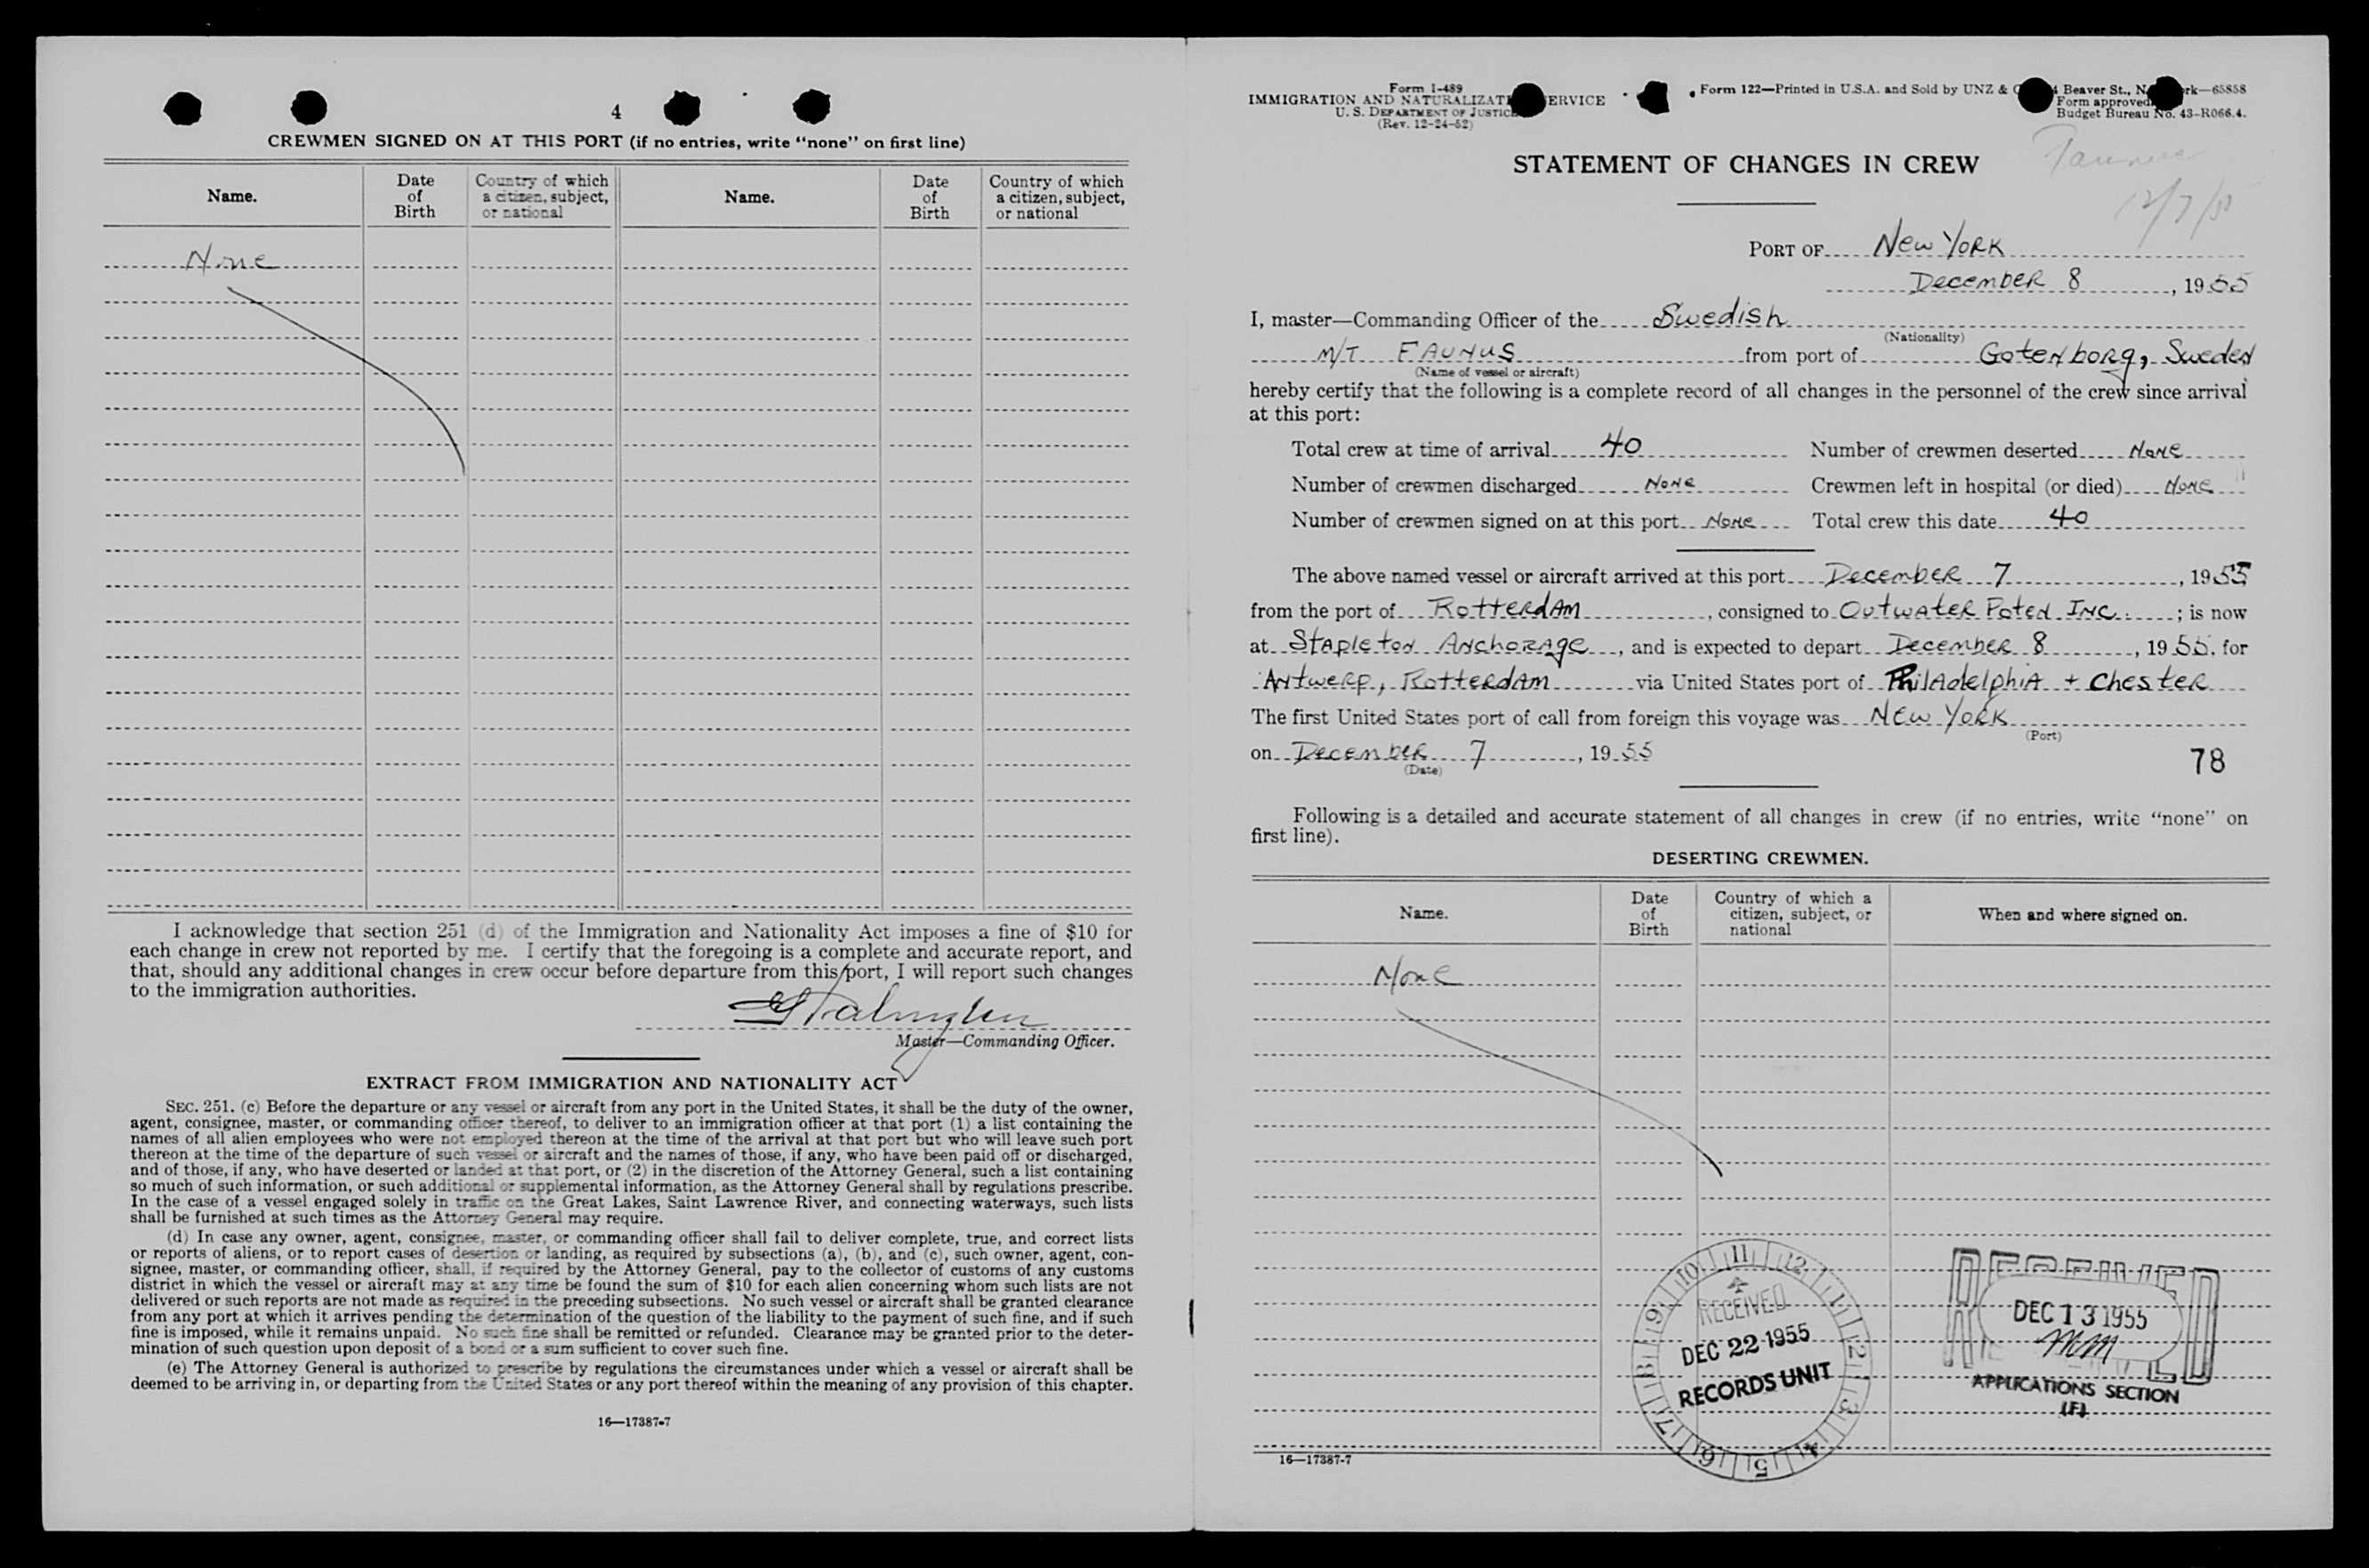 4
CREWMEN SIGNED ON AT THIS PORT (if no entries, write “none” on first line)
Name.
Date of Birth
Country of which a citizen, subject, or national
Name.
Date of Birth
Country of which a citizen, subject, or national
None
I acknowledge that section 251 (d) of the Immigration and Nationality Act imposes a fine of $10 for
each change in crew not reported by me. I certify that the foregoing is a complete and accurate report, and
that, should any additional changes in crew occur before departure from this port, I will report such changes
to the immigration authorities.
Master—Commanding Officer.
EXTRACT FROM IMMIGRATION AND NATIONALITY ACT
SEC. 251. (c) Before the departure or any vessel or aircraft from any port in the United States, it shall be the duty of the owner,
agent, consignee, master, or commanding officer thereof, to deliver to an immigration officer at that port (1) a list containing the
names of all alien employees who were not employed thereon at the time of the arrival at that port but who will leave such port
thereon at the time of the departure of such vessel or aircraft and the names of those, if any, who have been paid off or discharged,
and of those, if any, who have deserted or landed at that port, or (2) in the discretion of the Attorney General, such a list containing
so much of such information, or such additional or supplemental information, as the Attorney General shall by regulations prescribe.
In the case of a vessel engaged solely in traffic on the Great Lakes, Saint Lawrence River, and connecting waterways, such lists
shall be furnished at such times as the Attorney General may require.
(d) In case any owner, agent, consignee, master, or commanding officer shall fail to deliver complete, true, and correct lists
or reports of aliens, or to report cases of desertion or landing, as required by subsections (a), (b), and (c), such owner, agent, con-
signee, master, or commanding officer, shall, if required by the Attorney General, pay to the collector of customs of any customs
district in which the vessel or aircraft may at any time be found the sum of $10 for each alien concerning whom such lists are not
delivered or such reports are not made as required in the preceding subsections. No such vessel or aircraft shall be granted clearance
from any port at which it arrives pending the determination of the question of the liability to the payment of such fine, and if such
fine is imposed, while it remains unpaid. No such fine shall be remitted or refunded. Clearance may be granted prior to the deter-
mination of such question upon deposit of a bond or a sum sufficient to cover such fine.
(e) The Attorney General is authorized to prescribe by regulations the circumstances under which a vessel or aircraft shall be
deemed to be arriving in, or departing from the United States or any port thereof within the meaning of any provision of this chapter.
16—17387-7
Form I-489
IMMIGRATION AND SERVICE
U. S. DEPARTMENT OF JUSTICE
(Rev. 12-24-52)
Form 122—Printed in U.S.A. and Sold by UNZ & Beaver St., 65858
Form approved
Budget Bureau No. 43-R066.4.
Faunus
12/7/55
STATEMENT OF CHANGES IN CREW
PORT OF New York
December 8, 1955
I, master—Commanding Officer of the Swedish
(Nationality)
M/T FAUNUS from port of Gotenborg, Sweden
(Name of vessel or aircraft)
hereby certify that the following is a complete record of all changes in the personnel of the crew since arrival
at this port:
Total crew at time of arrival 40 Number of crewmen deserted None
Number of crewmen discharged None Crewmen left in hospital (or died) None
Number of crewmen signed on at this port None Total crew this date 40
The above named vessel or aircraft arrived at this port December 7, 1955
from the port of Rotterdam, consigned to Outwater Poten Inc.; is now
at Stapleton Anchorage, and is expected to depart December 8, 1955, for
Antwerp, Rotterdam via United States port of Philadelphia + Chester
The first United States port of call from foreign this voyage was New York
(Port)
on December 7, 1955
(Date)
78
Following is a detailed and accurate statement of all changes in crew (if no entries, write “none” on
first line).
DESERTING CREWMEN.
Name.
Date of Birth
Country of which a citizen, subject, or national
When and where signed on.
None
11 12 1 2 3 4 5 6 7 8 9 10
RECEIVED
DEC 22 1955
RECORDS UNIT
RECEIVED
DEC 13 1955
MM
APPLICATIONS SECTION
(F)
16—17387-7